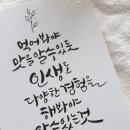 먹어봐야
맛을 알 수 있듯
인생도
다양한 경험을
해봐야
알 수 있는 것